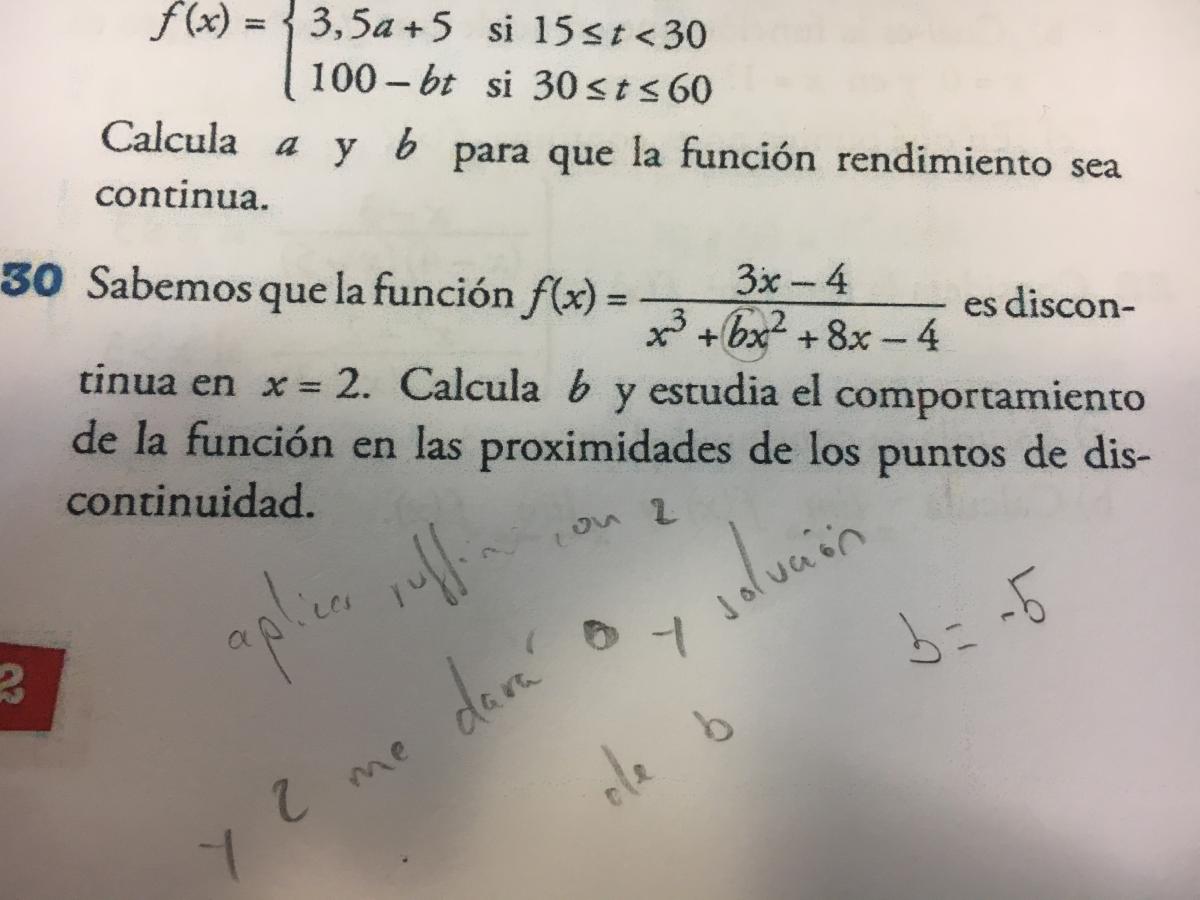 f(x) = { 3,5a + 5 si 15 ≤ t < 30
100 – bt si 30 ≤ t ≤ 60
Calcula a y b para que la función rendimiento sea
continua.
30 Sabemos que la función f(x) = (3x – 4)/(x³ + bx² + 8x – 4) es discon-
tinua en x = 2. Calcula b y estudia el comportamiento
de la función en las proximidades de los puntos de dis-
continuidad.
aplicar ruffini con 2
y 2 me dará 0 y solución
de b
b = -5
2